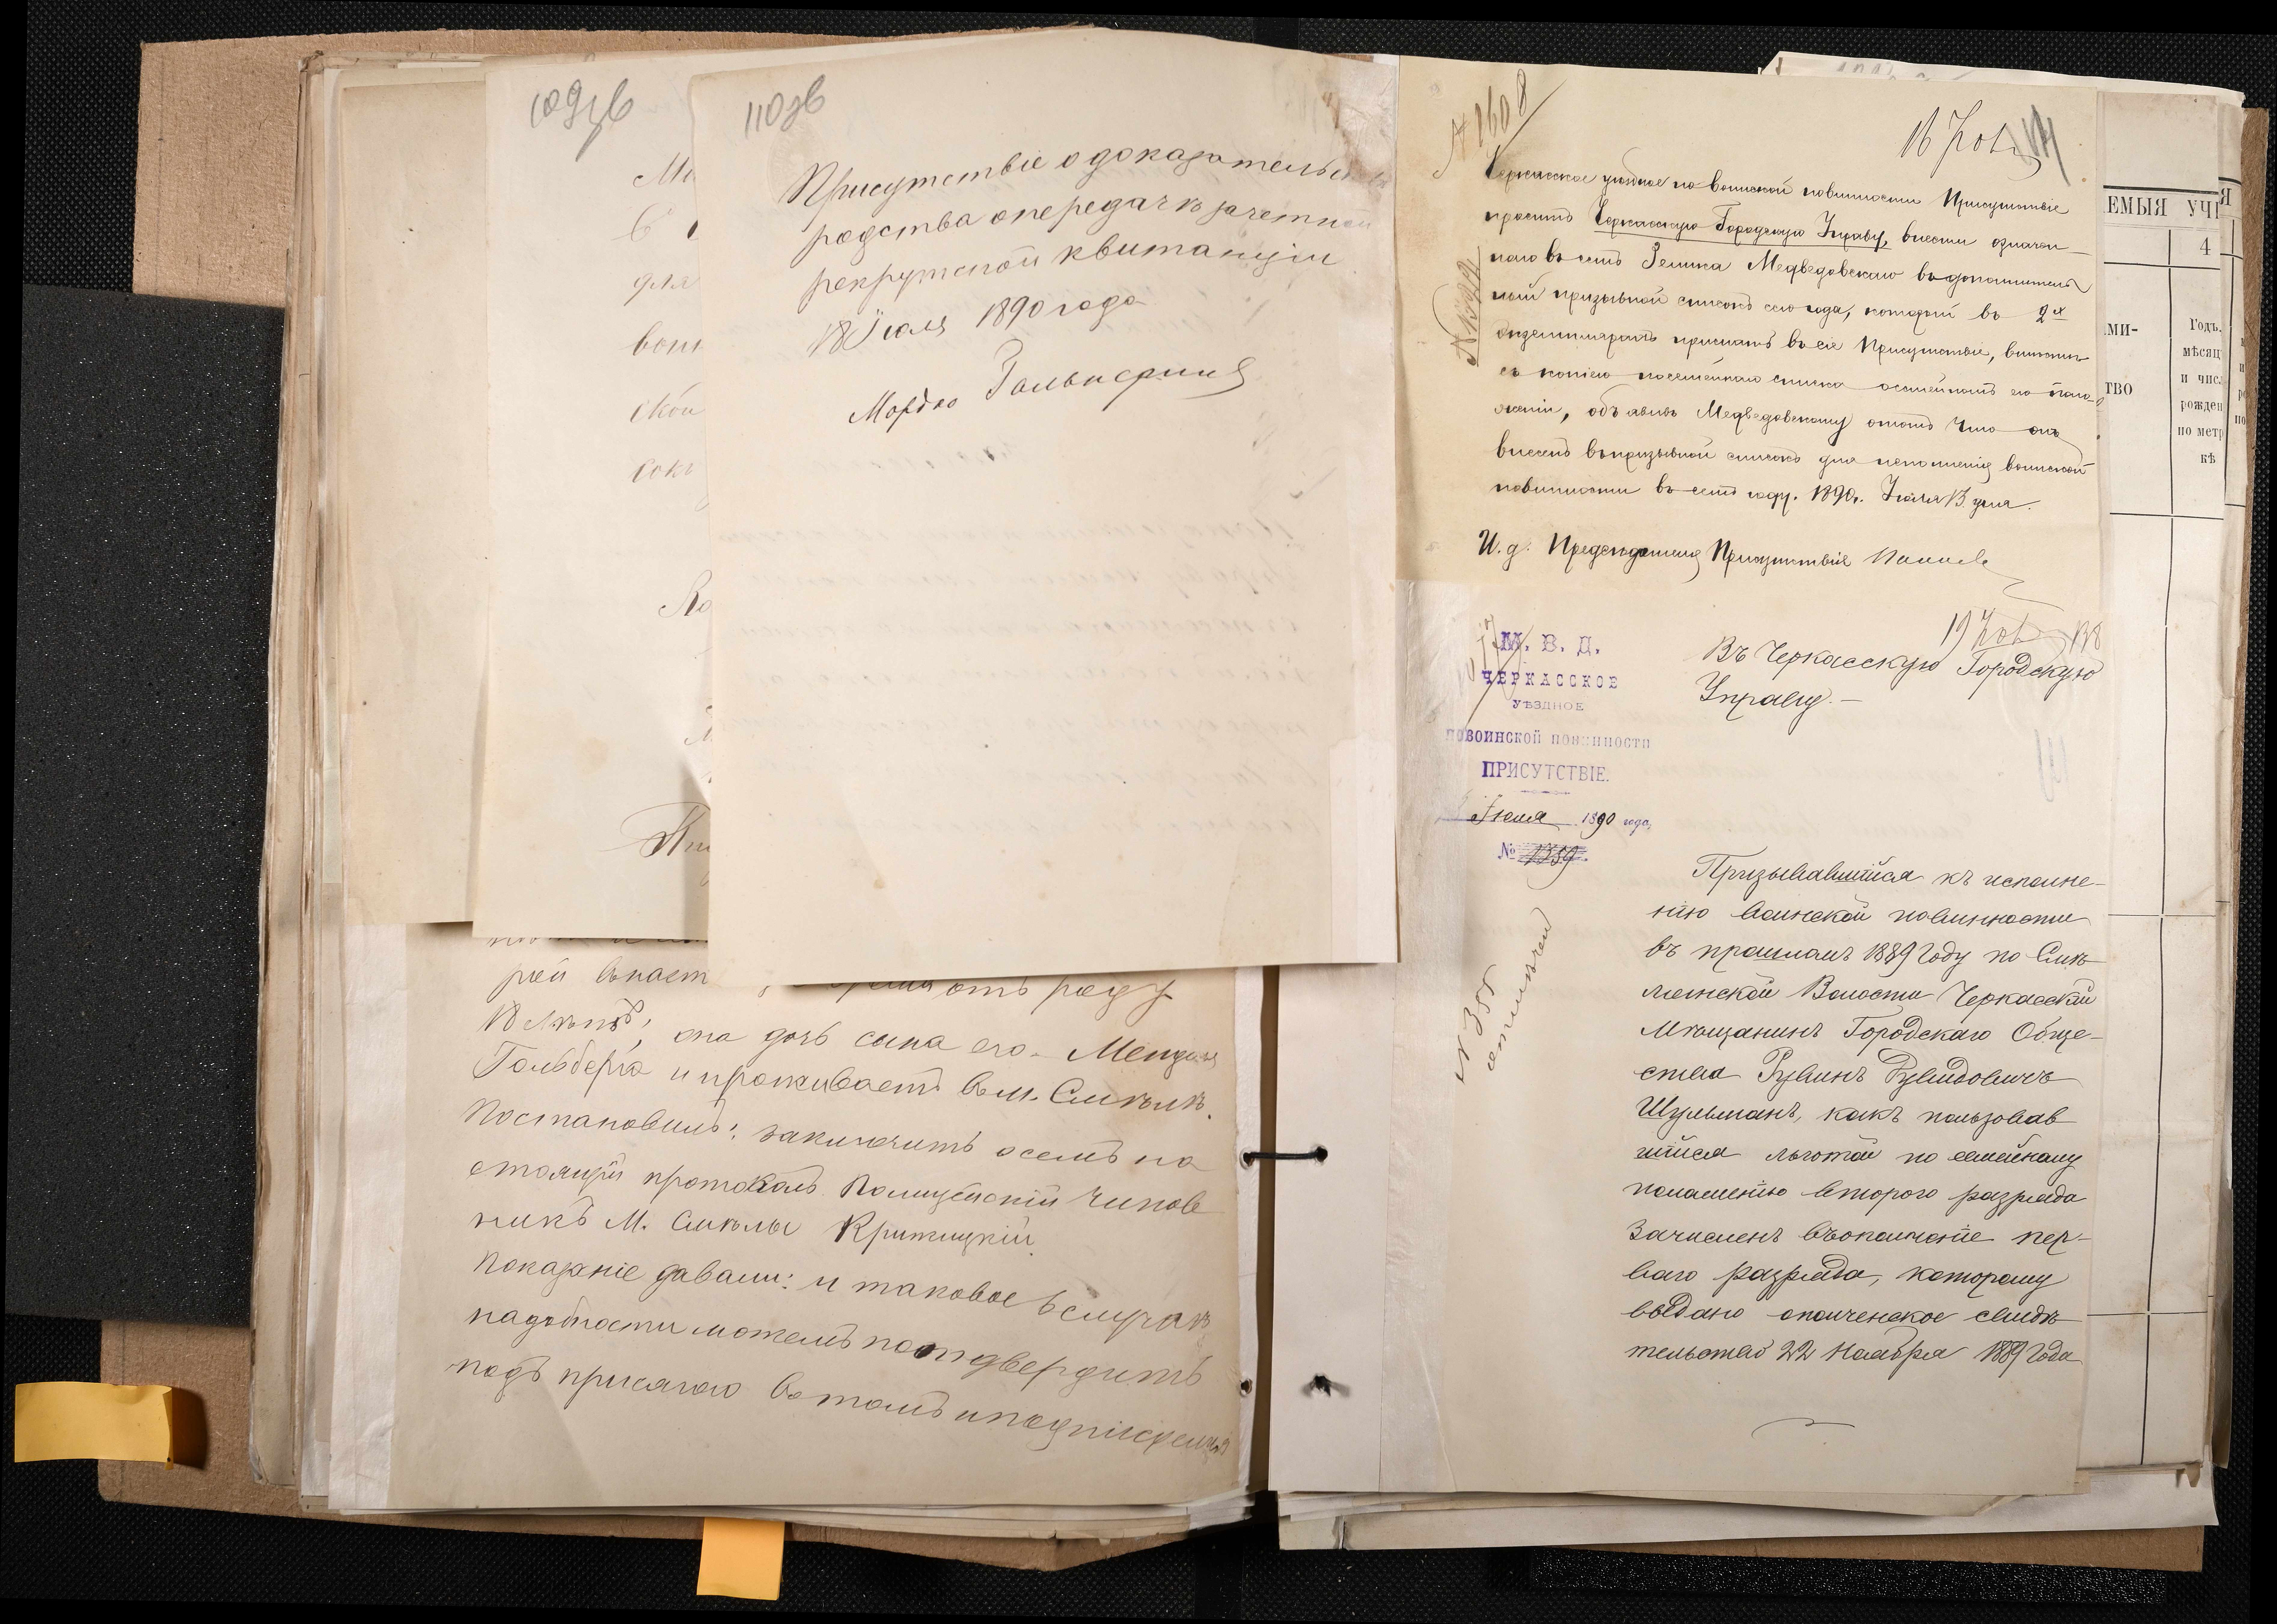 109зв
110зв
Присутствіе о доказательст
родства о передачѣ зачетной
рекрутской квитанціи
18 Іюля 1890 года
Мордко Гальперинъ
Ми
для
воин
ской
рой внаст отъ роду
18 лѣтъ, она дочь сына его Мендел
Гольберга и проживаетъ въ м. Смѣлѣ.
Постановилъ: заключить о семъ на
стоящій протоколъ. Полицейскій чинов
никъ М. Смѣлы Критицкій
Показаніе давали: и таковое в случаѣ
надобности можемъ подтвердить
подъ присягою въ томъ и подписуемся
№ 1608
16
Черкасское уѣздное по воинской повинности Присутствіе
проситъ Черкасскую Городскую Управу, внести означен
наго въ семъ Зелика Медведовскаго въ дополнитель
ный призывной списокъ сего года, который въ 2х
экземплярахъ прислать въ сіе Присутствіе, вмѣстѣ
съ копіею посемейнаго списка о семейномъ его поло-
женіи, объявивъ Медведовскому о томъ что онъ
внесенъ въ призывной списокъ для исполненія воинской
повинности въ семъ году. 1890 г. Іюля 13 дня.
И. д. Предсѣдателя Присутствія
М. В. Д.
ЧЕРКАССКОЕ
УѢЗДНОЕ
ПО ВОИНСКОЙ ПОВИННОСТИ
ПРИСУТСТВІЕ.
Іюля 1890 года,
№ 1359
19
Въ Черкасскую Городскую
Управу.
Призывавшійся къ исполне-
нію воинской повинности
въ прошломъ 1889 году по Смѣ
лянской Волости Черкасскій
Мѣщанинъ Городскаго Обще-
ства Рувинъ Дувидовичъ
Шульманъ, какъ пользовав
шійся льготой по семейному
положенію второго разряда
зачисленъ въ ополченіе пер-
ваго разряда, которому
выдано ополченское свидѣ
тельство 22 Ноября 1889 года
ЕМЫЯ УЧ
Я
4
МИ-
ТВО
Годъ,
мѣсяц
и чис
рожден
по метр
кѣ